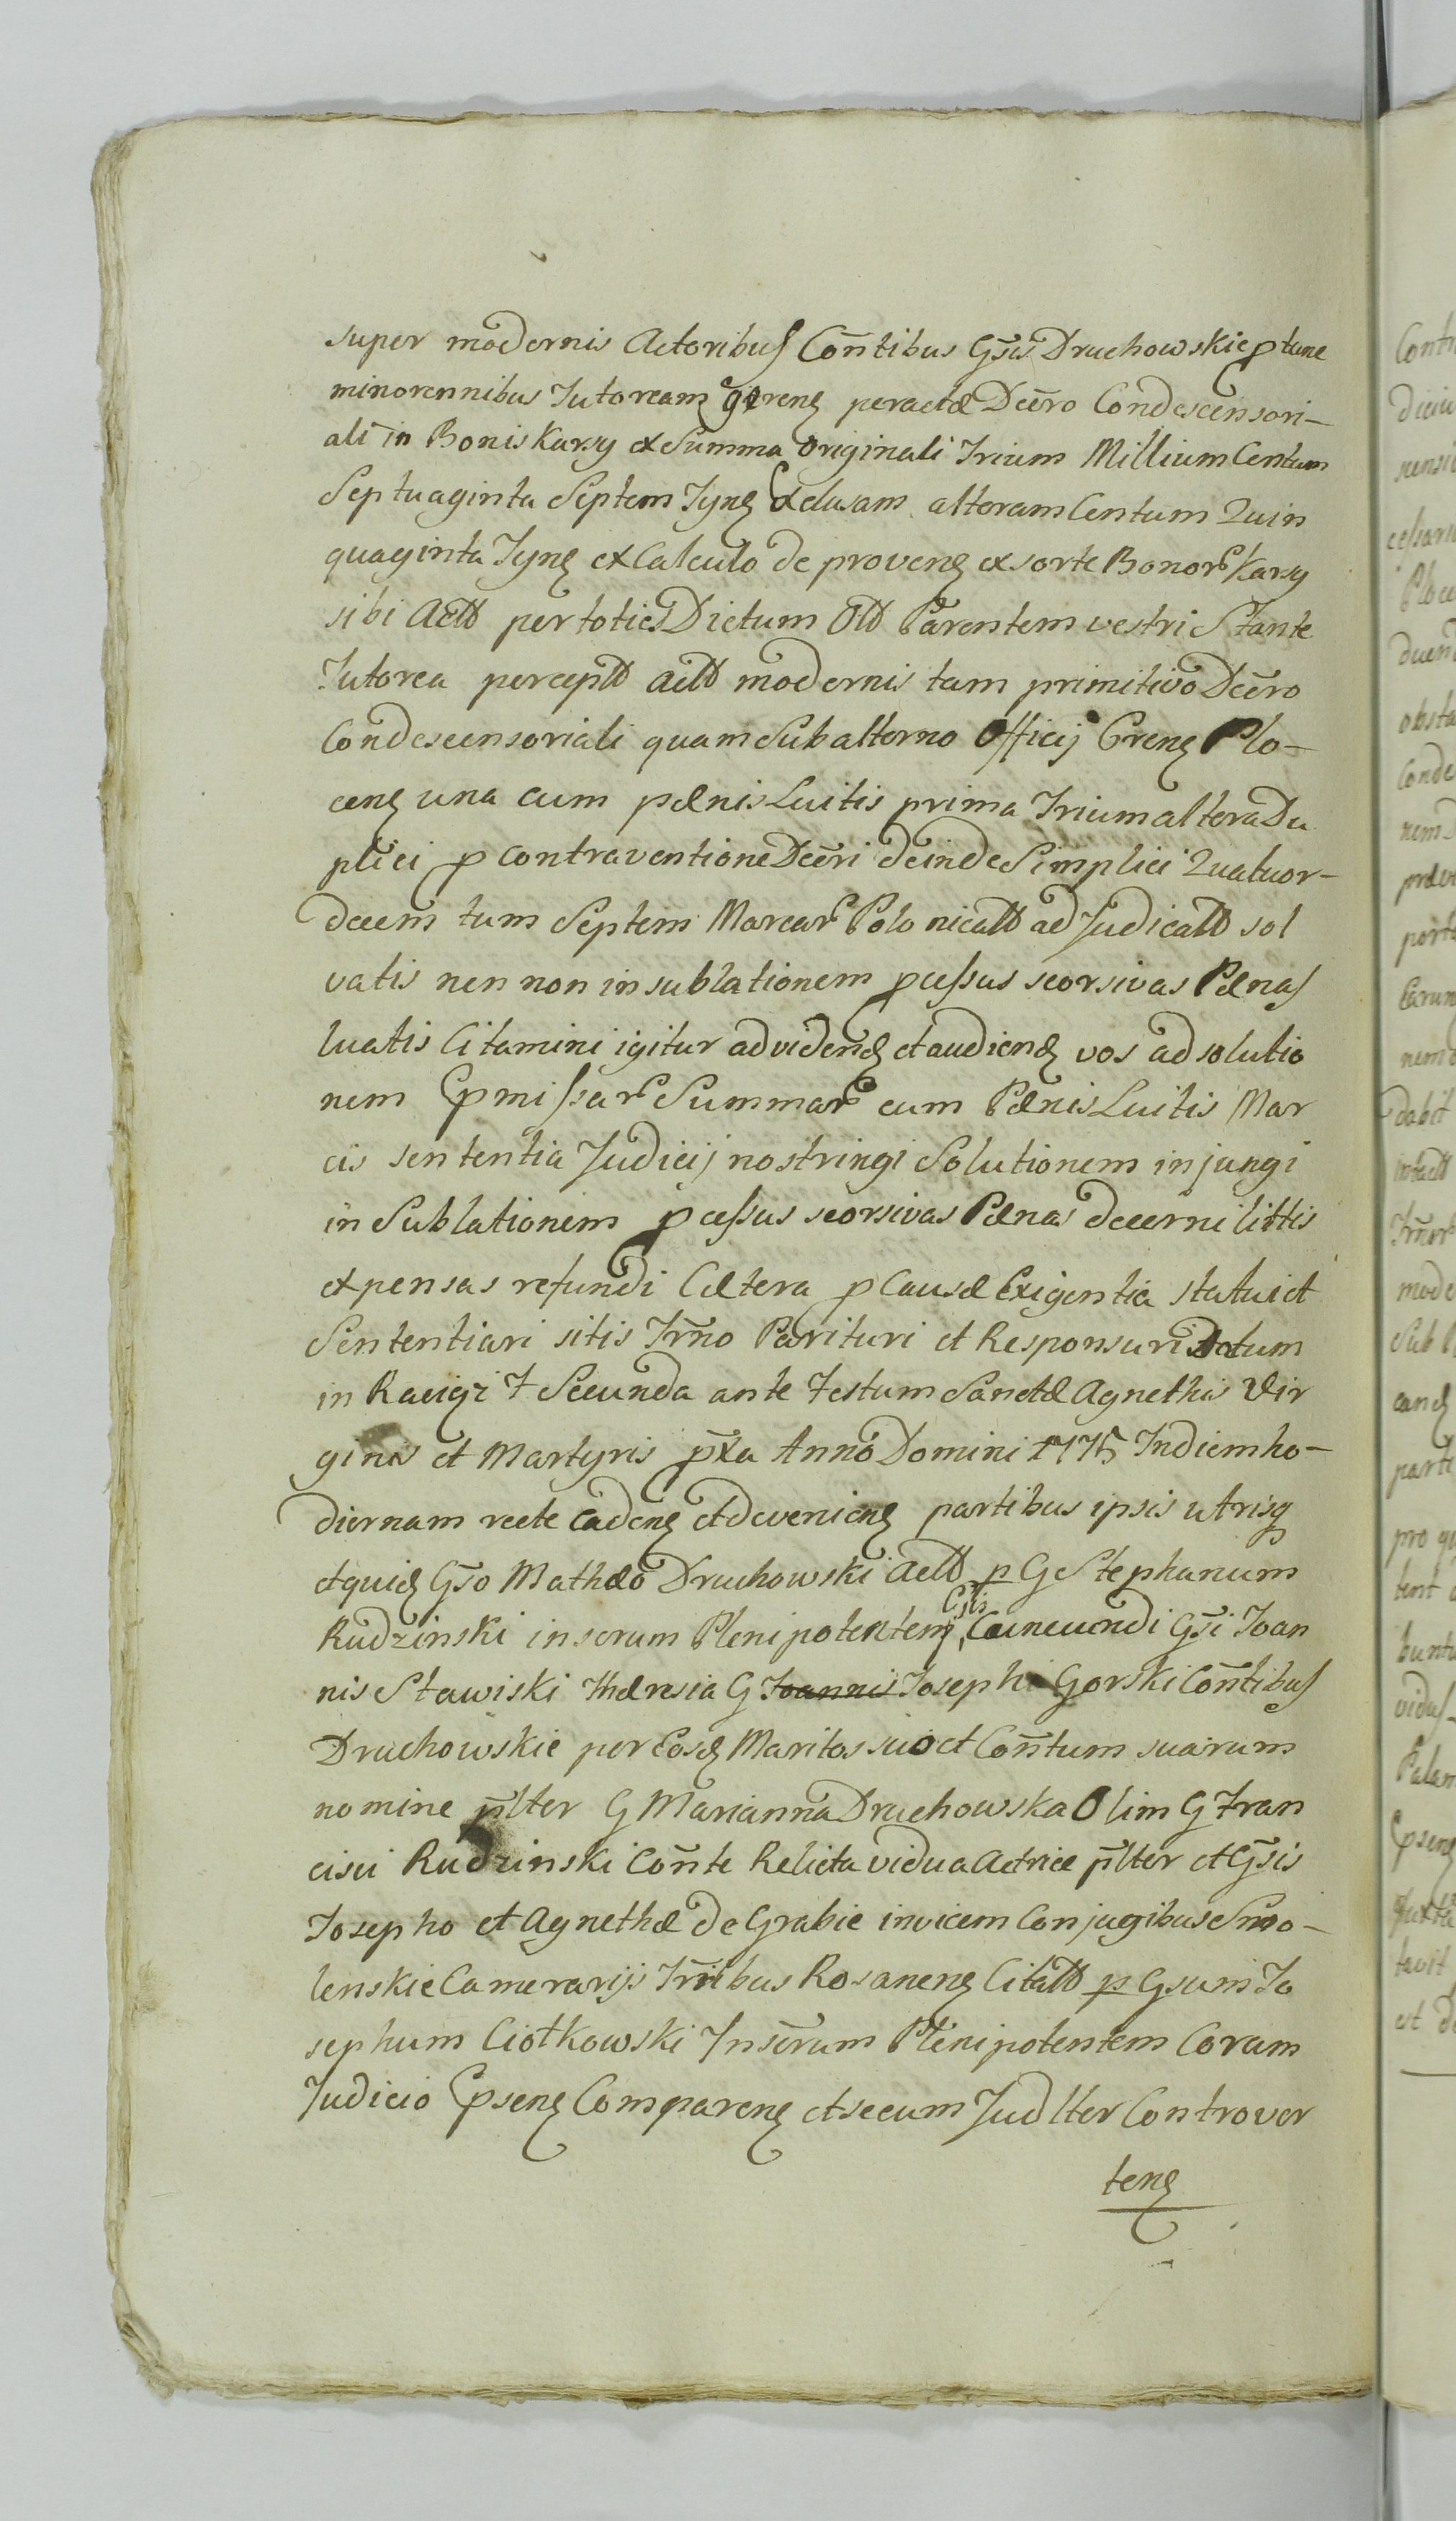 super modernis Actoribus Coñtibus Gs̃is Druchowskie p tunc
minorennibus Tutoream gereng peractæ Decr̃o Condescensori–
ali in Bonis Karsy ex Summa Originali Trium Millium Centum
Septuaginta Septem Tyng Exclusam alteram Centum Quin
quaginta Tyng ex Calculo de proveng ex sorte Bonor Karsy
sibi Actt per toties Dictum Olt Parentem vestri Stante
Tutorea perceptt actt modernis tam primitivo Decr̃o
Condescensoriali quam Subalterno Officij Creng Plo–
ceng una cum pænis Luitis prima Trium altera Du
plici p contraventione Decr̃i deinde Simplici Quatuor–
decem tum Septem Marcar Polonicatt adjudicatt sol
vatis nen non in sublationem pcessus seorsivas Pænas
luatis Citamini igitur ad videng et audieng vos ad solutio
nem Epmissar Summar cum Pænis Luitis Mar
cis sententia Judicij nostri ngi Solutionem injungi
in Sublationem pcessus seorsivas Pænas decerni littis
expensas refundi Cætera p Causæ Exigentia statui et
Sententiari sitis Trm̃o Parituri et Responsuri Datum
in Raciąż F Secunda ante Festum Sanctæ Agnethis Vir
ginis et Martyris px̃a Anno Domini 1775 In diem ho–
diernam recte cadeng et devenieng partibus ipsis utrisq
et quid Gs̃o Mathæo Druchowski Actt p G Stephanum
Rudzinski inserum Plenipotentem, Gsis Cunecundi Gs̃i Joan
nis Stawiski Thæresia G Joannis Josephi Gorski Coñtibus
Druchowskie per Eosd Maritos suo et Coñtum suarum
nomine pl̃ter G Marianna Druchowska Olim G Fran
cisci Rudzinski Coñte Relicta vidua Actrice pl̃ter et Gs̃is
Josepho et Agnethæ de Grabie invicem Conjugibus Smo–
lenskie Camerarijs Trr̃ibus Rosaneng Citatt p Gsum Jo
sephum Ciołkowski Inserum Plenipotentem Coram
Judicio Epseng Compareng et secum Judlter Controver
teng